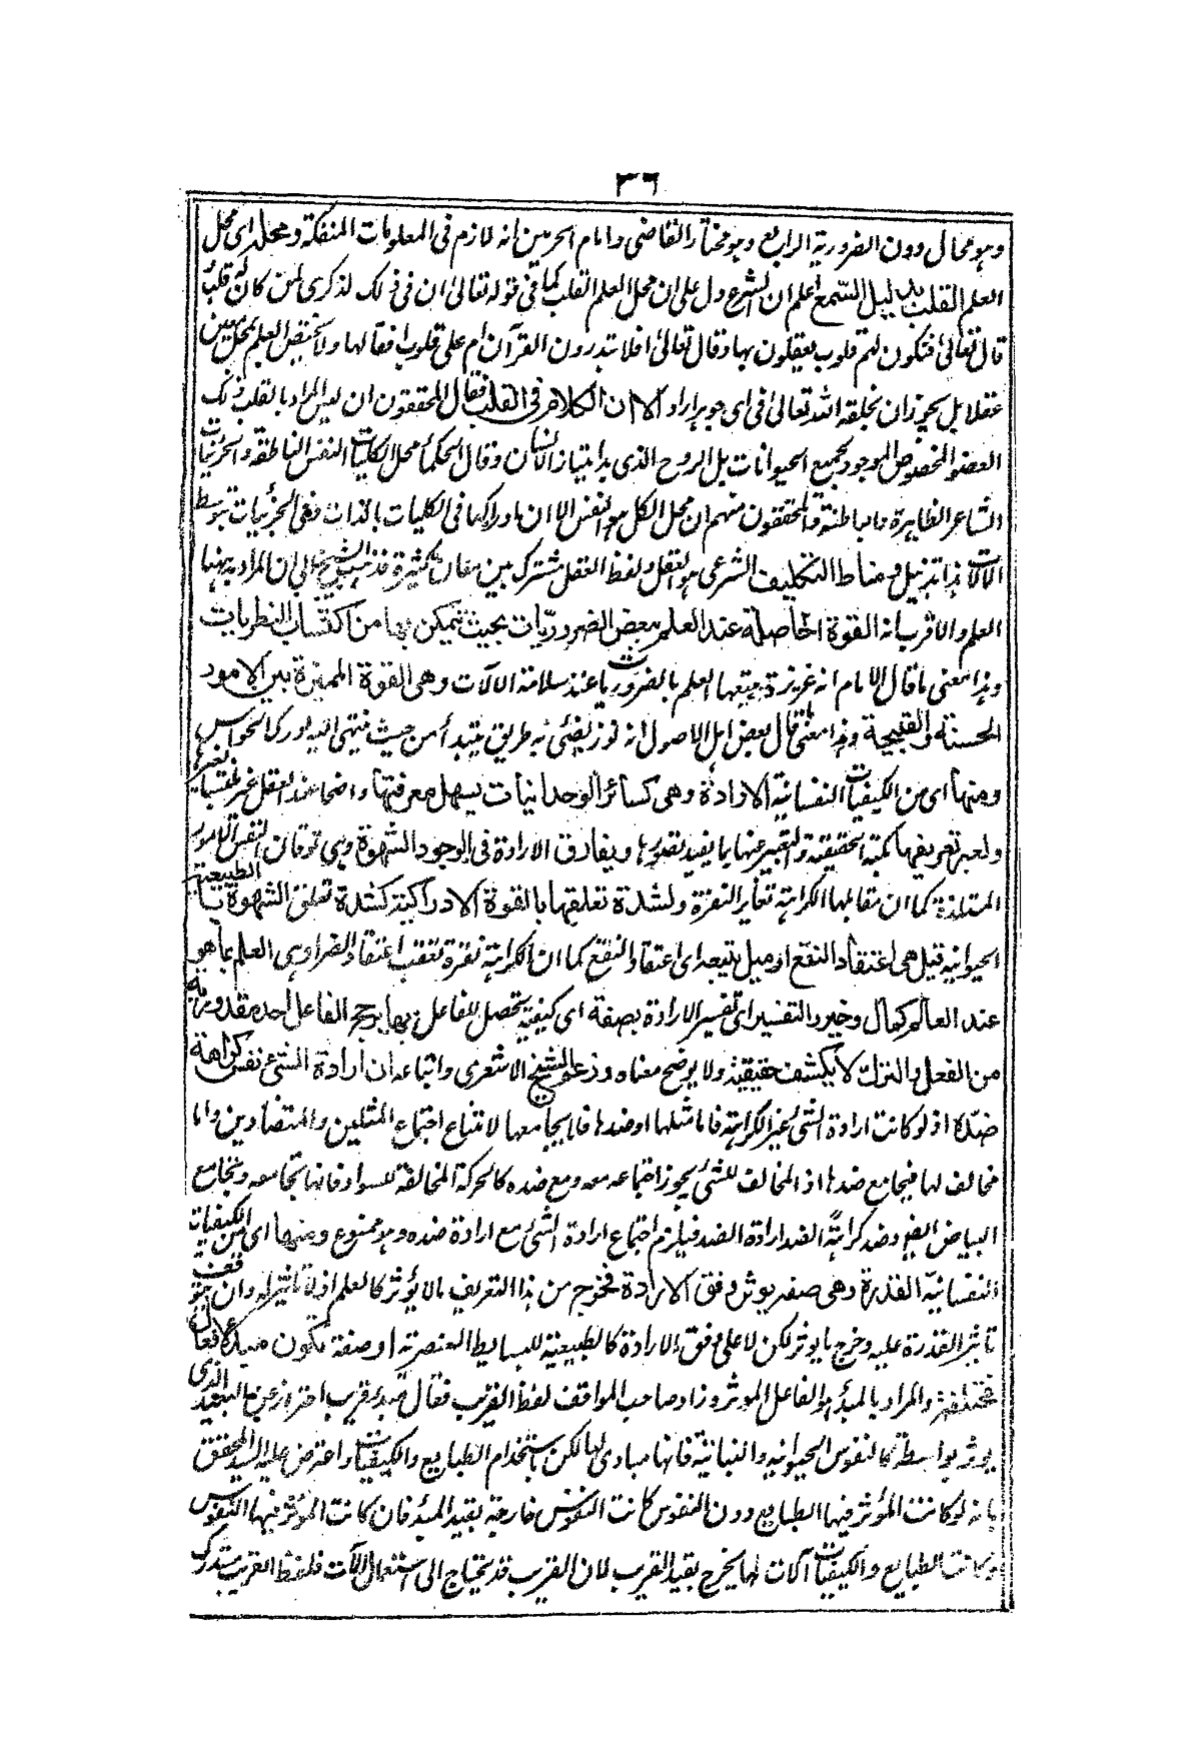 ٣٦
وهو محال دون الضرورية الرابع وهو مختار القاضى وامام الحرمين انه لازم فى المعلومات المنفكة ومحله اى محل
العلم القلب بدليل السمع اعلم ان الشرع دل على ان محل العلم القلب كما فى قوله تعالى ان فى ذلك لذكرى لمن كان له قلب
قال تعالى فتكون لهم قلوب يعقلون بها وقال تعالى افلا يتدبرون القرآن ام على قلوب اقفالها ولا يختص العلم بمحل معين
عقلا بل يجوز ان يخلقه الله تعالى فى اى جوهر اراد الا ان الكلام فى القلب فقال المحققون ان ليس المراد بالقلب ذلك
العضو المخصوص الموجود لجميع الحيوانات بل الروح الذى به امتياز الانسان وقال الحكماء محل الكليات النفس الناطقة والجزئيات
المشاعر الظاهرة والباطنة والمحققون منهم ان محل الكل هو النفس الا ان ادراكها فى الكليات بالذات وفى الجزئيات بتوسط
الآلات هذا تذييل ومناط التكليف الشرعى هو العقل ولفظ العقل مشترك بين معان كثيرة فذهب الشيخ الى ان المراد به ههنا
العلم والاقرب انه القوة الحاصلة عند العلم ببعض الضروريات بحيث يتمكن بها من اكتساب النظريات
وهذا معنى ما قال الامام انه غريزة يتبعها العلم بالضروريات عند سلامة الآلات وهى القوة المميزة بين الامور
الحسنة والقبيحة وهذا معنى ما قال بعض اهل الاصول انه نور يضئ به طريق يبتدأ من حيث ينتهى اليه درك الحواس
ومنها اى من الكيفيات النفسانية الارادة وهى كسائر الوجدانيات يسهل معرفتها واضحا عند العقل غير ملتبسة بغيرها
ولعسر تعريفها بكنه الحقيقة والتعبير عنها بما يفيد تصورها ويفارق الارادة فى الوجود الشهوة وهى توقان النفس الى الامور
المتلذة كما ان مقابلها الكراهة تغاير النفرة ولشدة تعلقها بالقوة الادراكية كشدة تعلق الشهوة بالطبيعة
الحيوانية قيل هى اعتقاد النفع او ميل يتبعه اى اعتقاد النفع كما ان الكراهة نفرة تعقب اعتقاد الضر او هى العلم بما هو
عند العالم كمال وخير والتفسير اى تفسير الارادة بصفة اى كيفية تحصل للفاعل بها يرجح الفاعل احد مقدوريه
من الفعل والترك لا يكشف حقيقته ولا يوضح معناه وزعم الشيخ الاشعرى واتباعه ان ارادة الشئ نفس كراهة
ضده اذ لو كانت ارادة الشئ غير الكراهة فاما مثلها او ضدها فلا يجامعها لامتناع اجتماع المثلين والمتضادين واما
مخالف لها فيجامع ضدها اذ المخالف للشئ يجوز اجتماعه معه ومع ضده كالحركة المخالفة للسواد فانها تجامعه وتجامع
البياض ايضا وضد كراهة الضد ارادة الضد فيلزم اجتماع ارادة الشئ مع ارادة ضده وهو ممنوع ومنها اى من الكيفيات
النفسانية القدرة وهى صفة يؤثر وفق الارادة فخرج من هذا التعريف ما لا يؤثر كالعلم اذ لا تاثير له وان توقف
تاثير القدرة عليه وخرج ما يؤثر لكن لا على وفق الارادة كالطبيعية للبسايط العنصرية او صفة تكون مبدء لافعال
مختلفة والمراد بالمبدء هو الفاعل الموثر وزاد صاحب المواقف لفظ القريب فقال مبدء قريب احتراز عن البعيد الذى
يوثر بواسطة كالنفوس الحيوانية والنباتية فانها مبادى لها لكن باستخدام الطبايع والكيفيات واعترض عليه السيد المحقق
بانه لو كانت المؤثر فيها الطبايع دون النفوس كانت النفوس خارجة بقيد المبدء فان كانت المؤثر فيها النفوس
وكانت الطبايع والكيفيات آلات لها لم يخرج بقيد القريب لان القريب قد يحتاج الى استعمال الآلات فلفظ القريب مستدرك